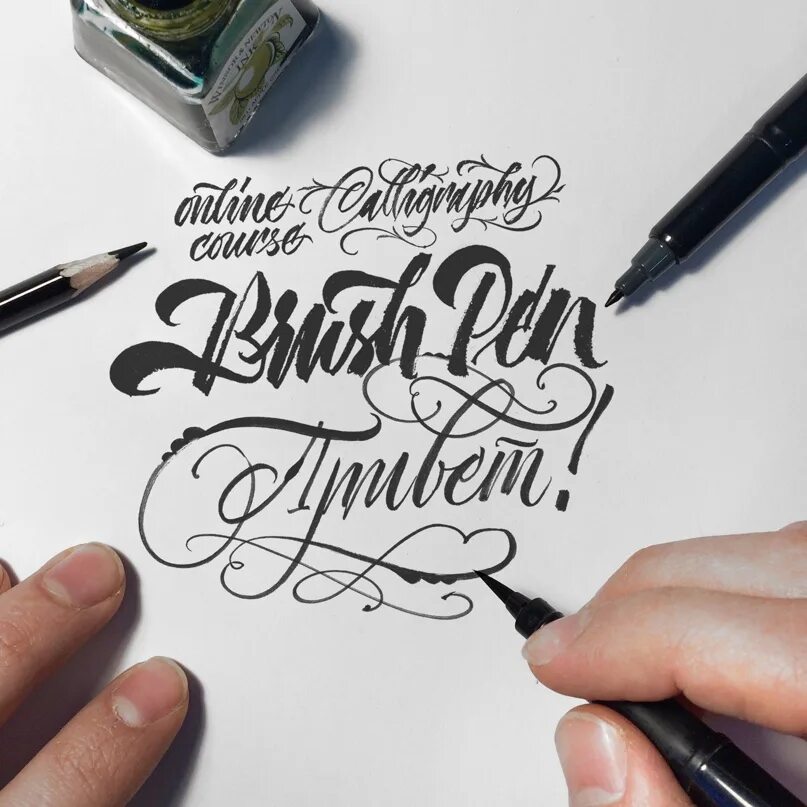 online Calligraphy
course
Brush Pen
Привет!
MINT